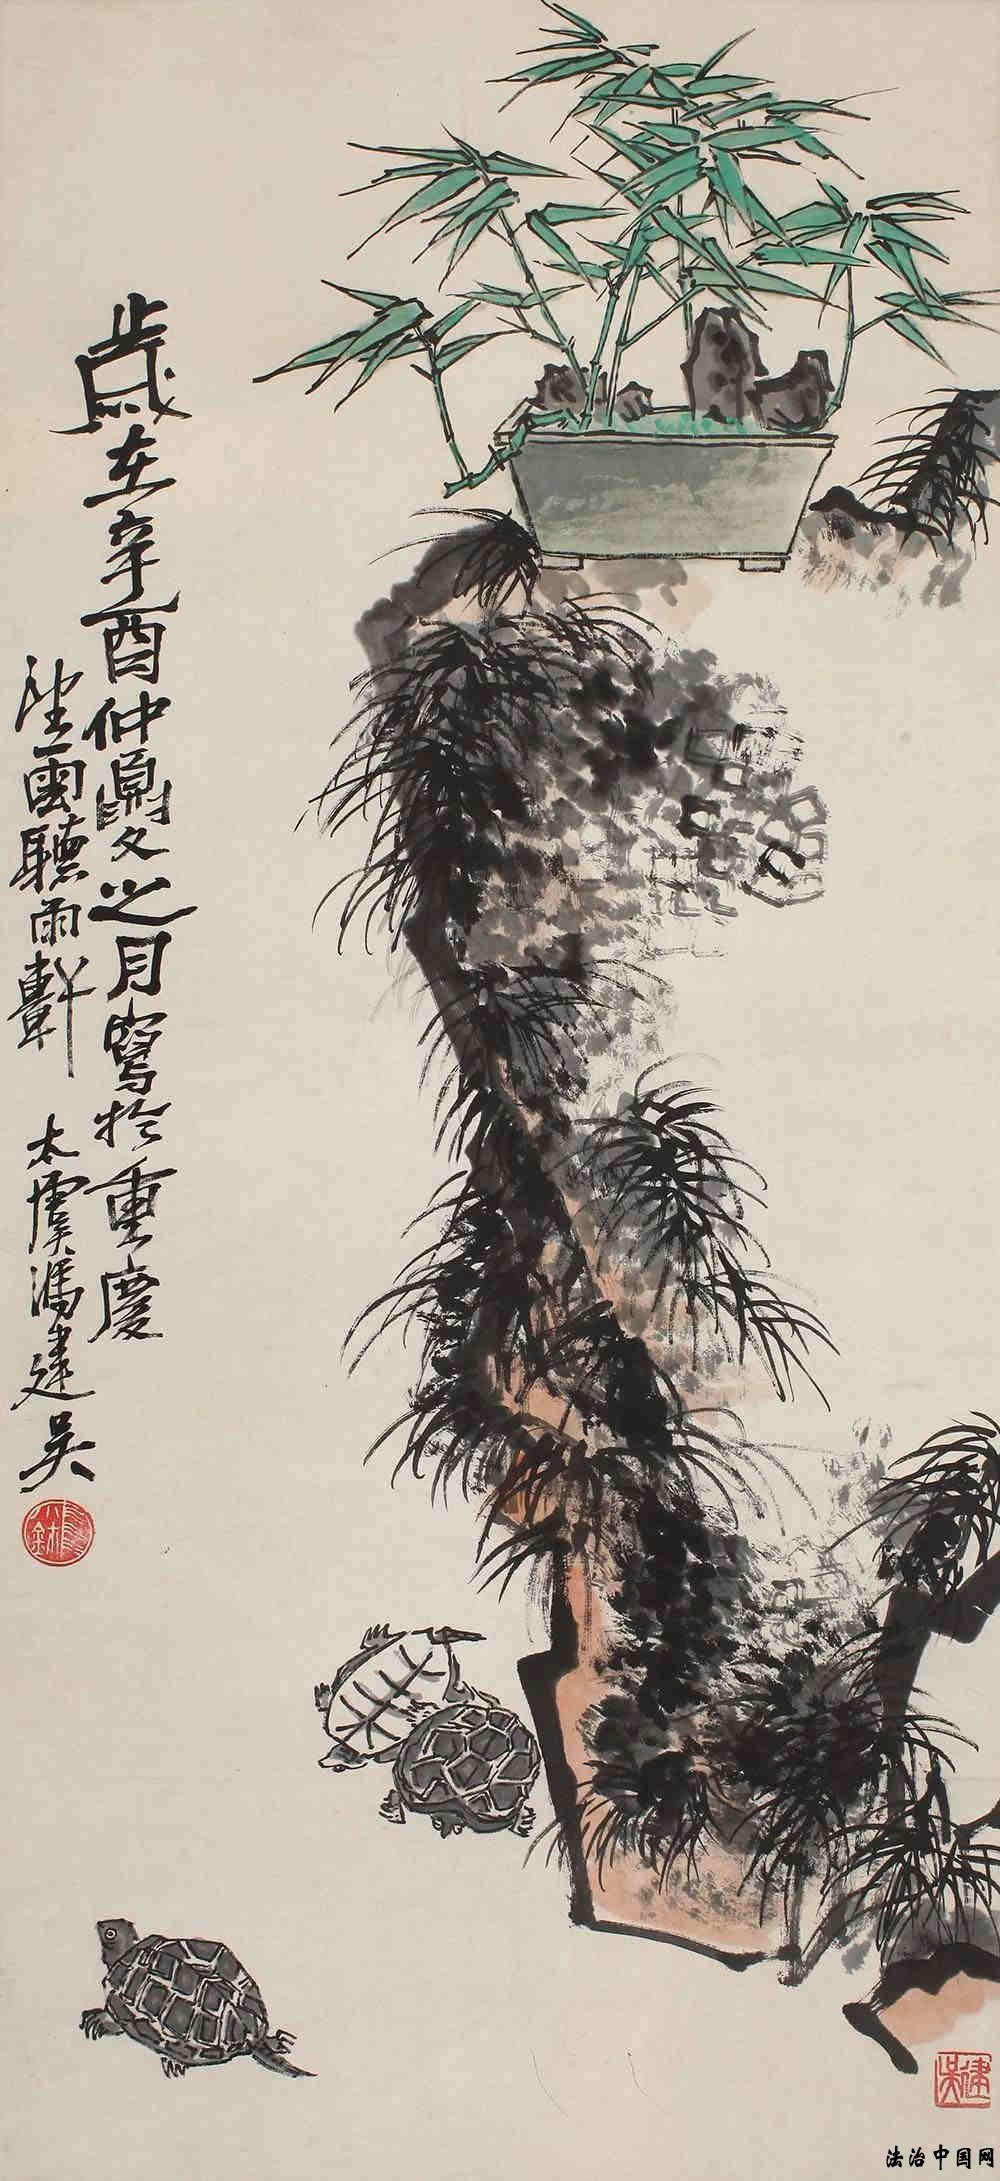 歲在辛酉仲夏之月寫於重慶
望雲聽雨軒 太虞馮建吴
建吴
法治中国网